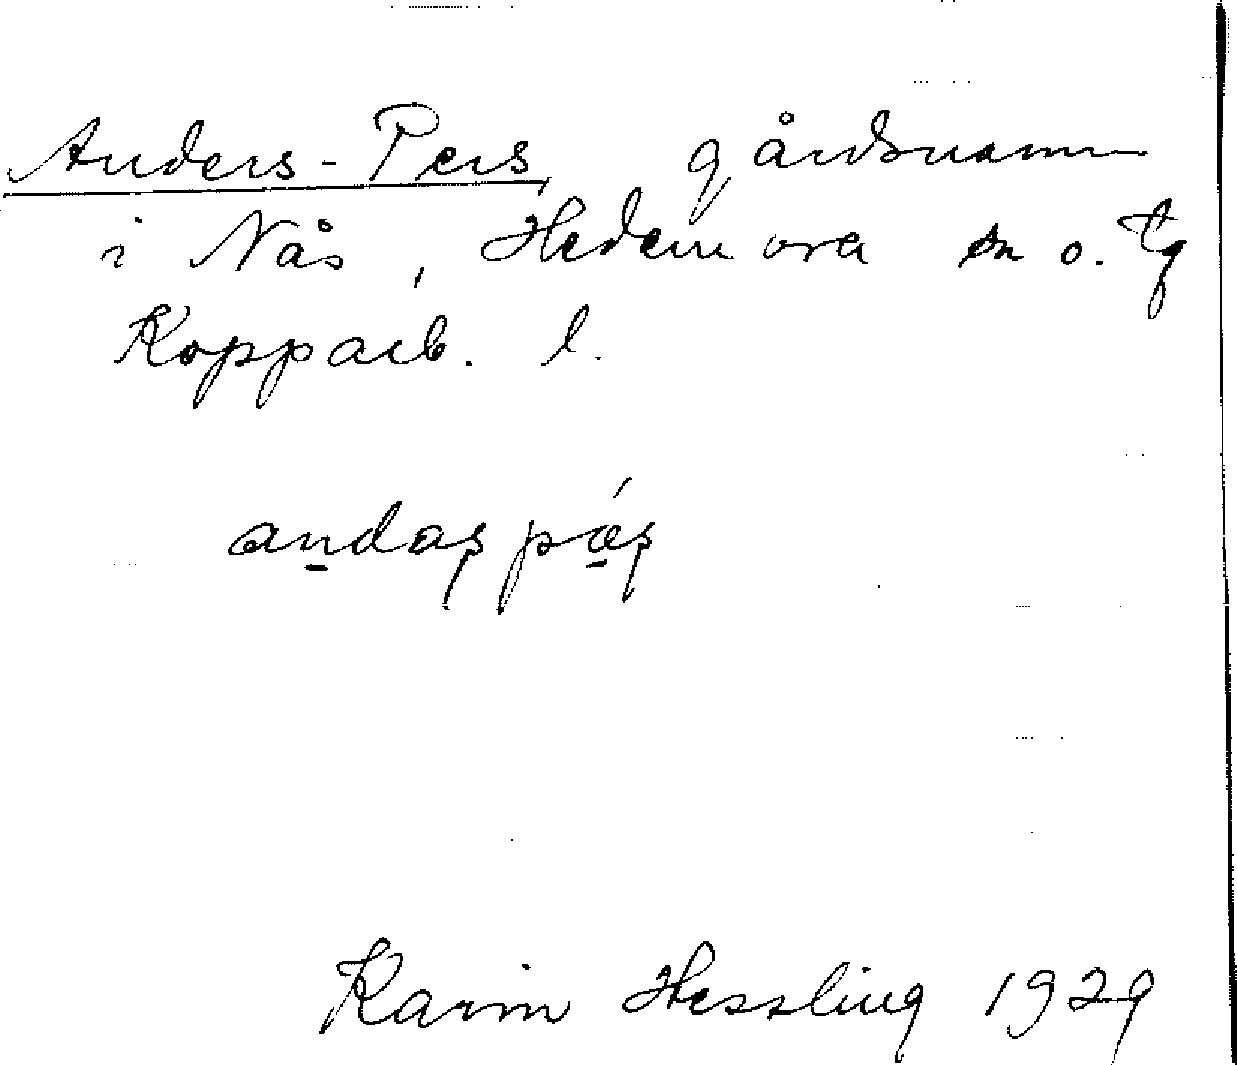 Anders-Pers, gårdsnamn
i Nås, Hedemora sn o. tg
Kopparb. l.
andaʂ pá̱ʂ
Karin Hessling 1929